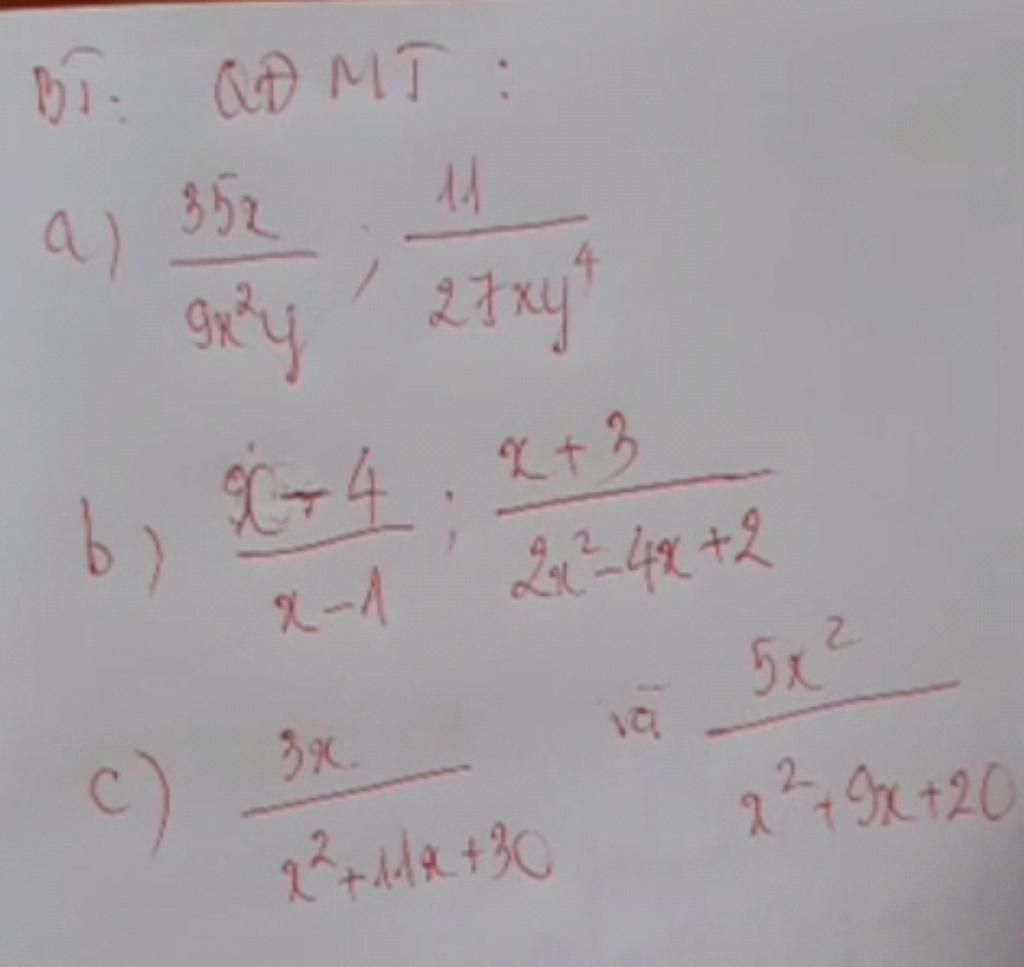 BT: QĐ MT :
a) \frac{35x}{9x^2y} ; \frac{11}{27xy^4}
b) \frac{x-4}{x-1} ; \frac{x+3}{2x^2-4x+2}
c) \frac{3x}{x^2+11x+30} và \frac{5x^2}{x^2+9x+20}